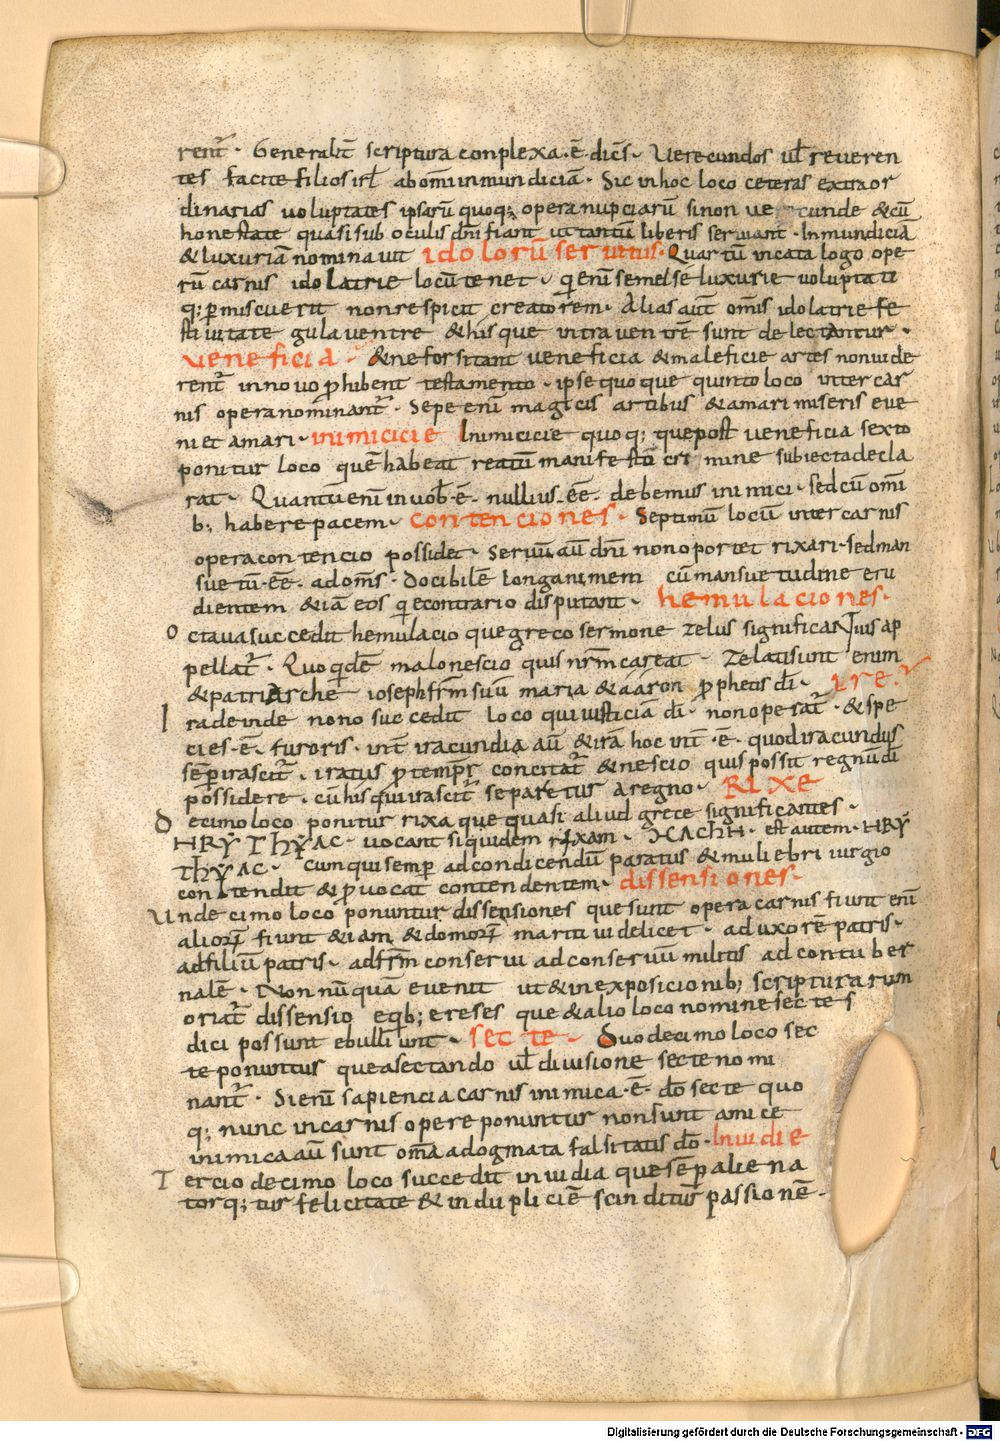 rent᷑· Generalit̄ scriptura conplexa·ē·dicēs· Uerecundos ul̄ reueren
tes facite filios isrl̄ ab om̄i inmundiciā· Sic in hoc loco ceteras extraor
dinarias uoluptates ipsarū quoq; opera nupciarū si non ue cunde &cū
honestate quasi sub oculis dn̄i fiant ut tantū liberis seruiant· Inmundiciā
&luxuriā nominauit idolorū seruitus· Quartū in catalogo ope
rū carnis idolatrie locū tenet· q̇ enī semel se luxurie uoluptati
q; p̄miscuerit non respicit creatorem· Alias aut̄ om̄is idolatrie fe
stiuitate gula uentre &his que intra uentrē sunt delectantur·
ueneficia· &ne forsitant ueneficia &maleficie artes non uide
rent᷑ in nouo p̄hibent testamento· ipse quoque quinto loco inter car
nis opera nominant᷑· Sepe enī magicis artibus &amari miseris eue
ni et amari· inimicicie Inimicicie quoq; que post ueneficia sexto
ponitur loco quē habeat reatū manifestō cri mine subiecta decla
rat· Quantū enī in uob̄·ē· nullius·eē· debemus inimici· sed cū om̄i
b; habere pacem· contenciones· Septimū locū inter carnis
opera contencio possidet· Seruū aū dn̄i non oportet rixari· sed man
suetū·eē· ad om̄s· docibilē longanimem cū mansuetudine eru
dientem &iā eos q̇ e contrario disputant· hemulaciones·
Octaua succedit hemulacio que greco sermone zelus significatiuis ap
pellat᷑· Quo q̇dē malo nescio quis nr̄m careat· Zelati sunt enim
&patriarche ioseph fr̄m suū maria &aaron p̄phetis dī· ire·
Ira deinde nono succedit loco qui iusticiā dī· non operat᷑· &spe
cies·ē· furoris· int̄ iracundia aū &irā hoc int̄·ē· quod iracundus
sēp̄ irascit᷑· iratus p̄ temp̄r concitat᷑ &nescio quis possit regnū dī
possidere· cū his qui irascit᷑ separetur a regno· RIXE
Decimo loco ponitur rixa que quasi aliud grece significantes·
HRY THYAC· uocant siquidem rixam· XACHH· est autem· HRY
THYAC· cum qui semp̄ ad condicendū paratus &muliebri iurgio
contendit &p̄uocat contendentem· dissensiones·
Undecimo loco ponuntur dissensiones que sunt opera carnis fiunt enī
alioꝝ fiunt &iam &domoꝝ mariti uidelicet· ad uxorē patris·
ad filiū patris· ad fr̄m conserui ad conseruū militis ad contuber
nalē· Non nūquā euenit ut &in exposicionib; scripturarum
oriat᷑ dissensio eq̇b; ereses que &alio loco nomine sectes
dici possunt ebulliunt· secte· Duodecimo loco sec
te ponuntus que a sectando ul̄ diuisione secte nomi
nant᷑· Si enī sapiencia carnis inimica·ē· dō secte quo
q; nunc in carnis opere ponuntur non sunt amice
inimica aū sunt om̄a adogmata falsitatis dō· Inuidie
Tercio decimo loco succedit inuidia que sēp̄ aliena
torq;tur felicitate &in duplicē scinditur᷑ passionē·
Digitalisierung gefördert durch die Deutsche Forschungsgemeinschaft - DFG